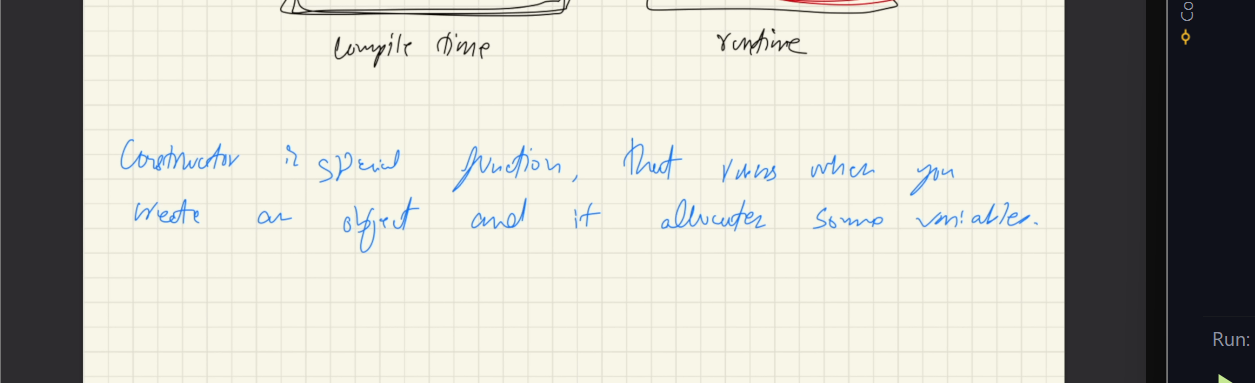 Co
compile time
runtime
Constructor is special function, that runs when you
create an object and it allocates some variables.
Run: